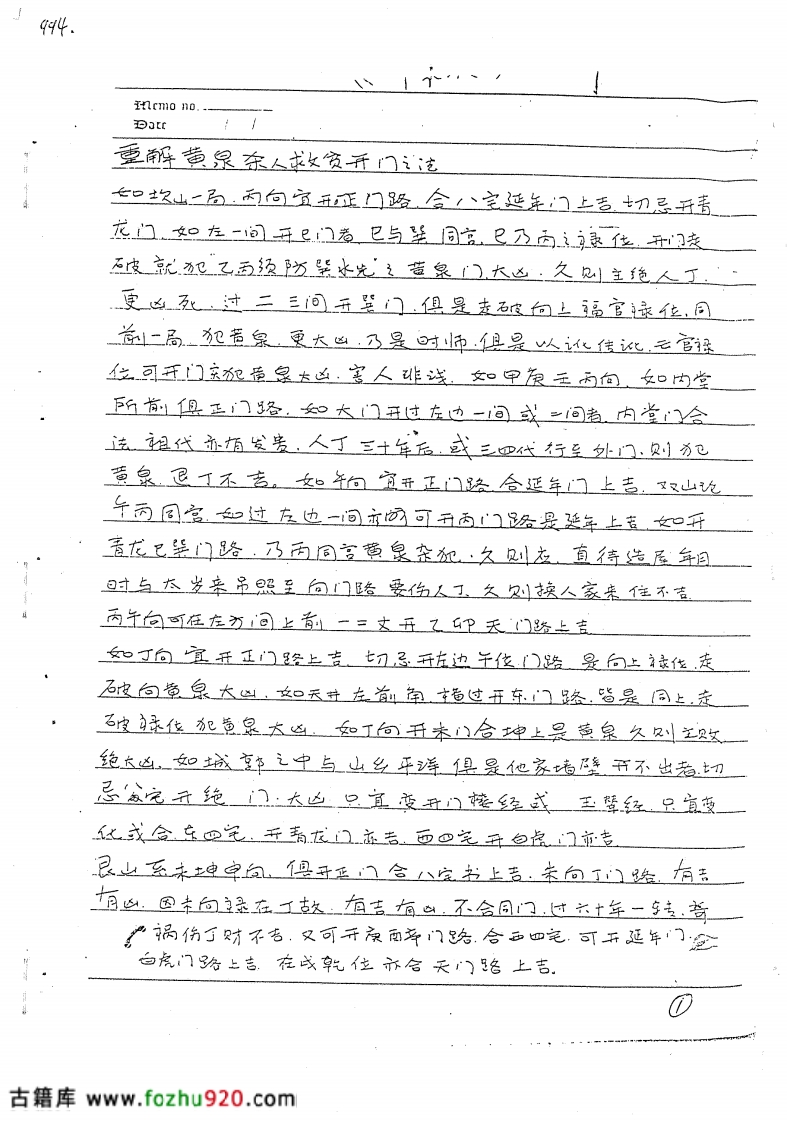 994.
Memo no.
Date / /
重解黄泉杀人救贫开门之法
如坎山一局.丙向宜开正门路.合八宅延年门上吉.切忌开青
龙门.如左一间开巳门者.巳与巽同宫.巳乃丙之禄位.开门走
破就犯乙丙须防巽水先之黄泉门大凶.久则主绝人丁.
更凶死.过二三间开巽门.俱是走破向上福官禄位.同
前一局.犯黄泉.更大凶.乃是时师.俱是以讹传讹.云官禄
位可开门.亦犯黄泉大凶.害人非浅.如甲庚壬丙向.如内堂
所前俱正门路.如大门开过左边一间或二间者.内堂门合
法.祖代亦有发贵.人丁三十年后.或三四代行至外门.则犯
黄泉.退丁不吉。如午向宜开正门路.合延年门上吉.双山论
午丙同宫.如过左边一间亦可开丙门路是延年上吉.如开
青龙巳巽门路.乃丙同宫黄泉杂犯.久则应.直待造屋年月
时与太岁来吊照至向门路要伤人丁.久则换人家来住不吉
丙午向可在左方间上前一二丈开乙卯天门路上吉
如丁向宜开正门路上吉.切忌开左边午位门路是向上禄位.走
破向黄泉大凶.如天井左前南.横过开东门路.皆是同上.走
破禄位犯黄泉大凶.如丁向开未门合坤上是黄泉久则主败
绝大凶.如城郭之中与山乡平洋俱是他家墙壁开不出者.切
忌宅开绝门.大凶只宜变开门楼经或玉辇经.只宜变
化或合东四宅.开青龙门亦吉.西四宅开白虎门亦吉
艮山系未坤申向.俱开正门合八宅书上吉.未向丁门路.有吉
有凶.因未向禄在丁故.有吉有凶.不合同门.过六十年一转.
祸伤丁财不吉.又可开庚酉辛门路.合西四宅.可开延年门.
白虎门路上吉.在戌乾位亦合天门路上吉。
①
古籍库 www.fozhu920.com